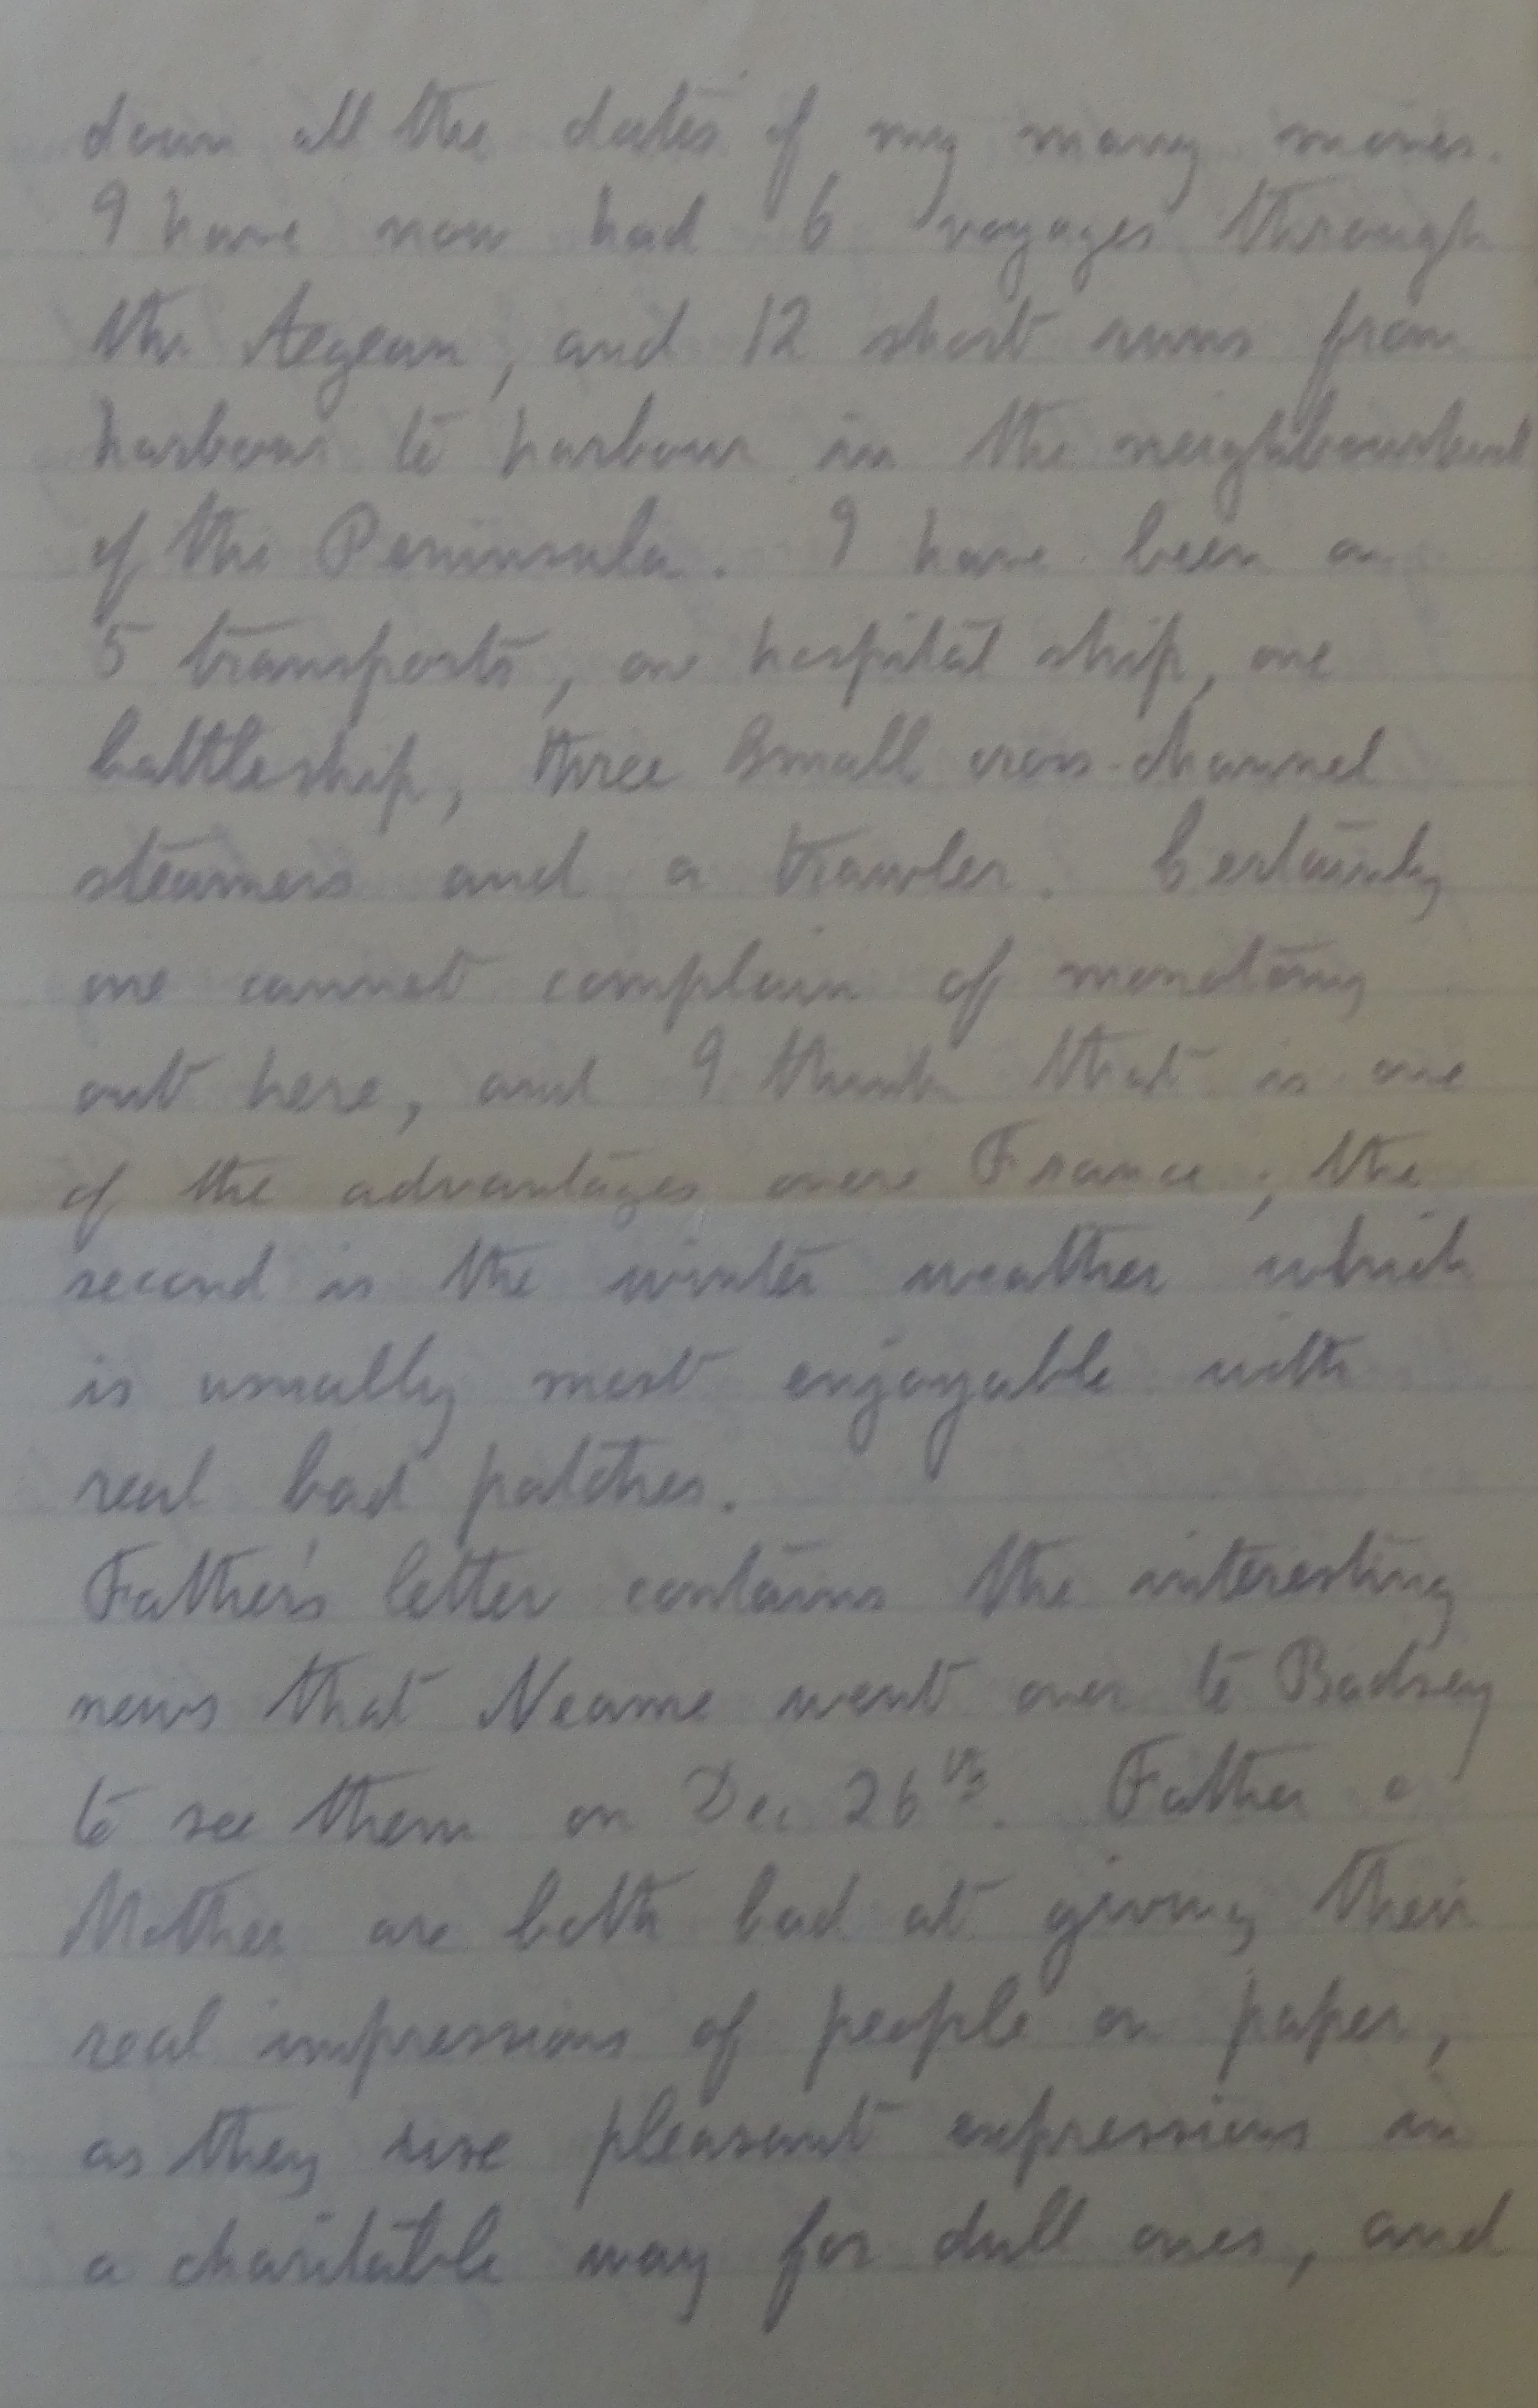 down all the dates of my many moves.
I have now had 6 voyages through
the Aegean, and 12 short runs from
harbour to harbour in the neighbourhood
of the Peninsula. I have been on
5 transports, one hospital ship, one
battleship, three small cross-channel
steamers and a trawler. Certainly
one cannot complain of monotony
out here, and I think that is one
of the advantages over France; the
second is the winter weather which
is usually most enjoyable with
real bad patches.
Father's letter contains the interesting
news that Neame went over to Badsey
to see them on Dec. 26th. Father &
Mother are both bad at giving their
real impressions of people on paper,
as they use pleasant expressions in
a charitable way for dull ones, and